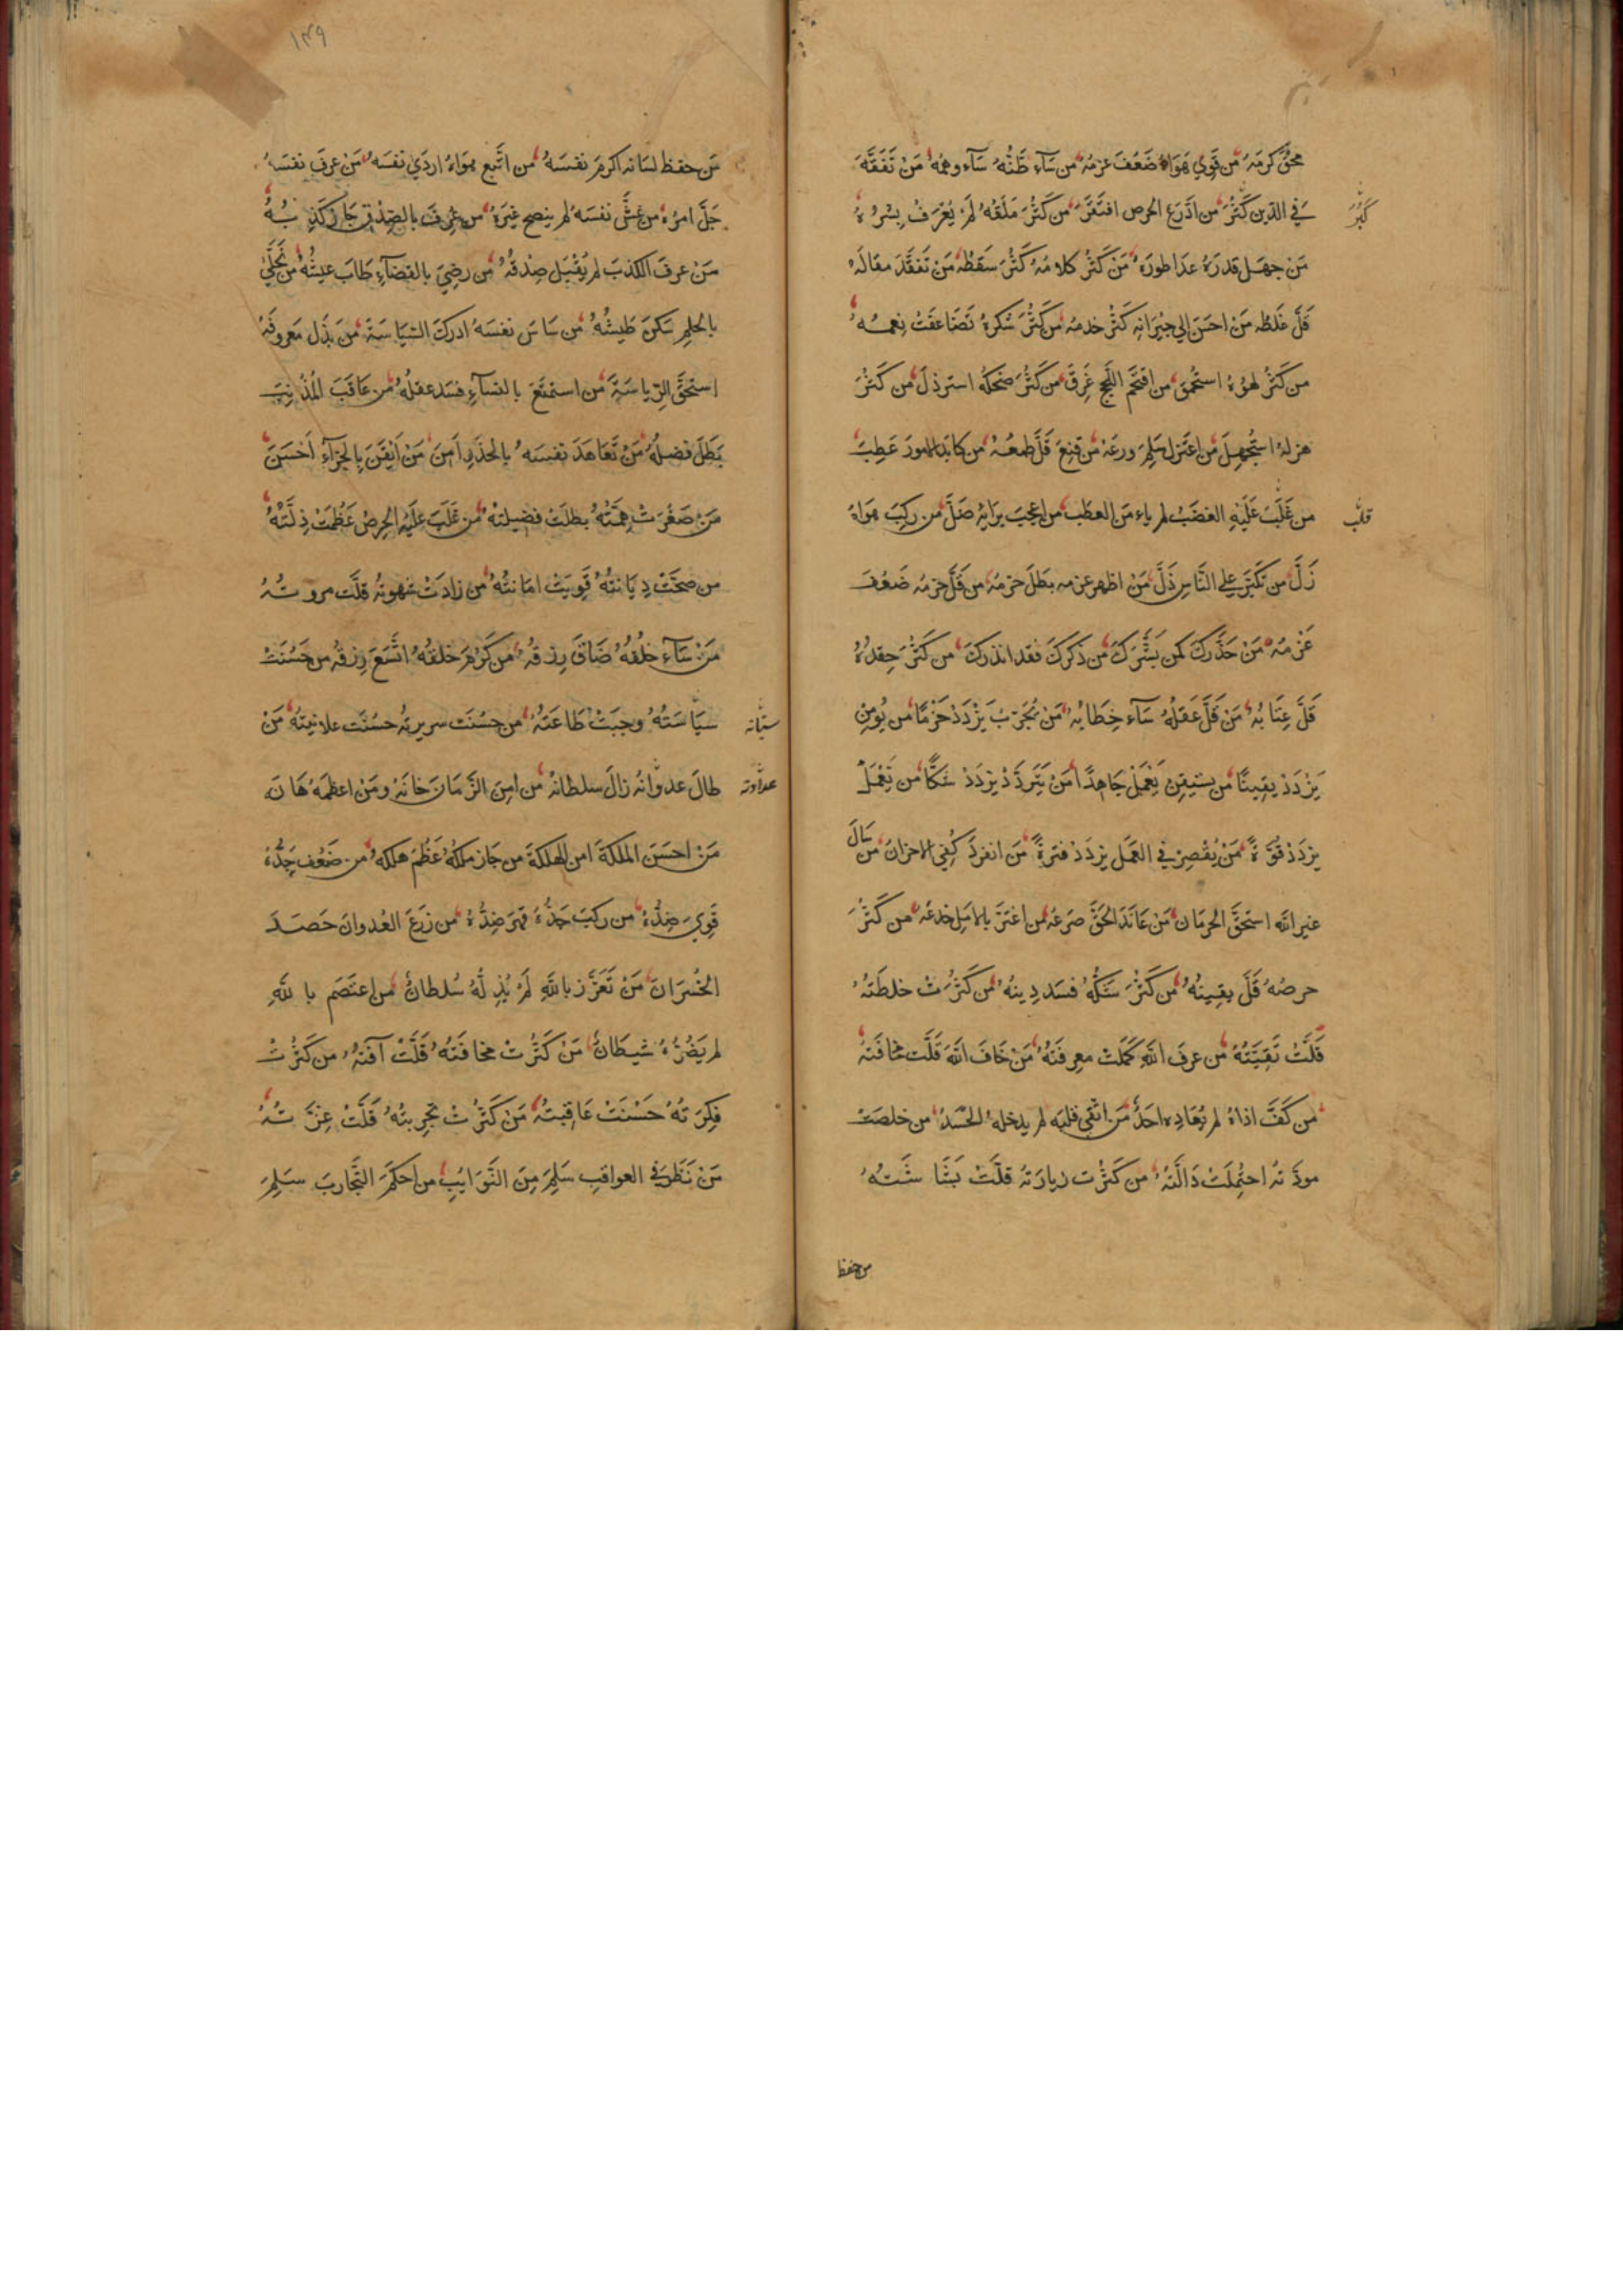 محقّ كرمَهُ من قَوِي هَوَاهُ ضَعُفَ عزمُهُ من سَآءَ ظَنُّهُ سَآءَ وهمُهُ مَنْ تَفَقَّهَ
في الدّين كَثُرَ من ادَّرَعَ الحرص افتَقَرَ من كَثُرَ مَلَقُهُ لَمْ يُعْرَفْ بِشرُهُ
كَبُرَ
مَنْ جهَل قدرَهُ عدَا طورَهُ مَنْ كَثُرَ كلامُهُ كَثُرَ سَقَطُهُ مَنْ تَفَقَّدَ مقالَهُ
قَلَّ غَلَطُه مَنْ احسَنَ الي جيْرَانِهِ كَثُرَ خدمُه من كَثُرَ شكرُهُ تَضَاعَفَتْ نِعمُهُ
من كَثُرَ لهوُهُ استُحمِقَ من اقتَحَم اللّجج غَرِقَ من كَثُرَ ضحكُهُ استرذِلَ من كَثُرَ
هزلهُ استُجهِلَ من اعتَزل سَلِمَ ورعُهُ من قنِعَ قَلَّ طمَعُهُ من كابَدَ الامورَ عَطِبَ
من غَلَبَ عَلَيْهِ الغضَبُ لم يامَن العطَب من اعجِبَ برَايِهِ ضَلَّ من ركِبَ هواهُ
قلب
زَلَّ من تكَبّرَ علي النَّاسِ ذَلَّ مَنْ اظهر عزمه بطَلَ حزمُهُ من قَلَّ حزمُه ضَعُفَ
عَزْمُهُ مَنْ حَذَّركَ كمن بَشَّرَكَ من ذكَرَكَ فقد انذركَ من كَثُرَ حِقدُهُ
قَلَّ عِتَابُهُ مَنْ قَلَّ عَقلُهُ سَآءَ خِطَابُهُ مَنْ يُجَرّبْ يَزْدَدْ حَزْمًا من يُومِن
يَزْدَدْ يقِينًا من يستيقِن يَعْمَلْ جَاهِدًا مَنْ يَتَردَّدْ يزدَدْ شَكًّا من يَعْمَلْ
يزدَدْ قوَّةً مَنْ يُقصِرْ في العَمَل يزدَدْ فترَةً من انفردَ كُفِي الاحزانَ من سَالَ
غير الله استحَقَّ الحرمَان مَنْ عَانَدَ الحَقَّ صَرعَهُ من اغتَرَّ بالامَل خدعَهُ من كَثُرَ
حرصُهُ قَلَّ يقِينُهُ من كَثُرَ شَكُّهُ فسَد دِينُهُ من كَثُرَتْ خلطَتُهُ
قَلَّتْ تَقِيَّتُهُ من عرفَ اللهَ كَمَلَتْ معرِفَتُهُ مَنْ خَافَ اللهَ قَلَّت مخافَتُهُ
من كَفَّ اذاهُ لم يُعَادِه احَدٌ مَن اتّقي قلبُه لم يدخلهُ الحسَدُ من خلصَتْ
مودَّتُه احتُمِلَتْ دَالَّتُهُ من كَثُرَت زيارَتُهُ قلَّتْ بَشَاشَتُهُ
من حفظ
١٣٩
مَن حفظ لسَانَه اكرمَ نفسَهُ من اتّبعَ هوَاهُ اردَي نَفسَهُ مَنْ عرفَ نفسَهُ
جَلَّ امرُهُ من غشَّ نفسَهُ لم ينصح غيرَهُ من عُرِفَ بالصِّدْقِ جَازَ كَذِبُهُ
مَنْ عرفَ بالكذبَ لم يُقْبَل صِدْقُهُ من رضِيَ بالقضآءِ طَابَ عيشُهُ من تَحَلَّيٰ
بالحلم سَكنَ طَيشُهُ من سَاسَ نفسَهُ ادركَ السّيَاسَةَ من بَذَل مَعروفَهُ
استحَقَّ الرّياسَةَ من استمتَعَ بالنسآءِ فسَد عقلُهُ من عَاقَبَ المُذْنِبَ
بَطَلَ فضلُهُ مَنْ تَعَاهَدَ نفسَهُ بالحذَرِ اَمِنَ مَنْ اَيْقَنَ بِالجزآءِ اَحْسَنَ
مَنْ صَغُرَتْ هِمَّتُهُ بطلَتْ فضيلتُهُ من غَلَبَ علَيْهِ الحرصُ عَظُمَتْ ذِلَّتُهُ
من صحَّتْ دِيَانتُهُ قوِيَتْ امَانتُهُ من زادَتْ شهوتُهُ قلَّت مروتُهُ
مَنْ سَآءَ خُلُقُهُ ضَاقَ رِزقُهُ من كَرُمَ خلقُهُ اتّسَعَ رِزقُهُ من حَسُنَتْ
سيَاسَتُهُ وجبَتْ طَاعَتُهُ من حسُنَت سريرتُهُ حسُنَت علانيتُهُ مَنْ
طالَ عدوَانُهُ زالَ سلطانُهُ من امِنَ الزَّمَانَ خانَهُ ومَنْ اعظمَهُ هَانَه
عداوته
مَنْ احسَنَ الملكَةَ امن الهلكَةَ من جَازَ ملكُهُ عَظُمَ هلكهُ من ضَعُفَ جِدُّهُ
قَوِيَ ضِدُّهُ من ركبَ جدُّهُ قهَرَ ضِدُّهُ من زرَعَ العُدوانَ حَصَدَ
الخُسْرَانَ مَنْ تَعَزَّزَ باللهِ لَمْ يُذِلّهُ سُلطانٌ من اعتصَم باللهِ
لم يَضُرّهُ شيطانٌ مَنْ كَثُرَتْ مخافَتُهُ قَلَّتْ آفتُهُ من كَثُرَتْ
فِكرَتُهُ حَسُنَتْ عَاقِبتُهُ مَنْ كَثُرَتْ تجرِبتُهُ قَلَّتْ غِرَّتُهُ
مَنْ نَظَرَ في العواقبِ سَلِمَ مِنَ النَّوَايبِ من احكَمَ التَّجاربَ سَلِمَ